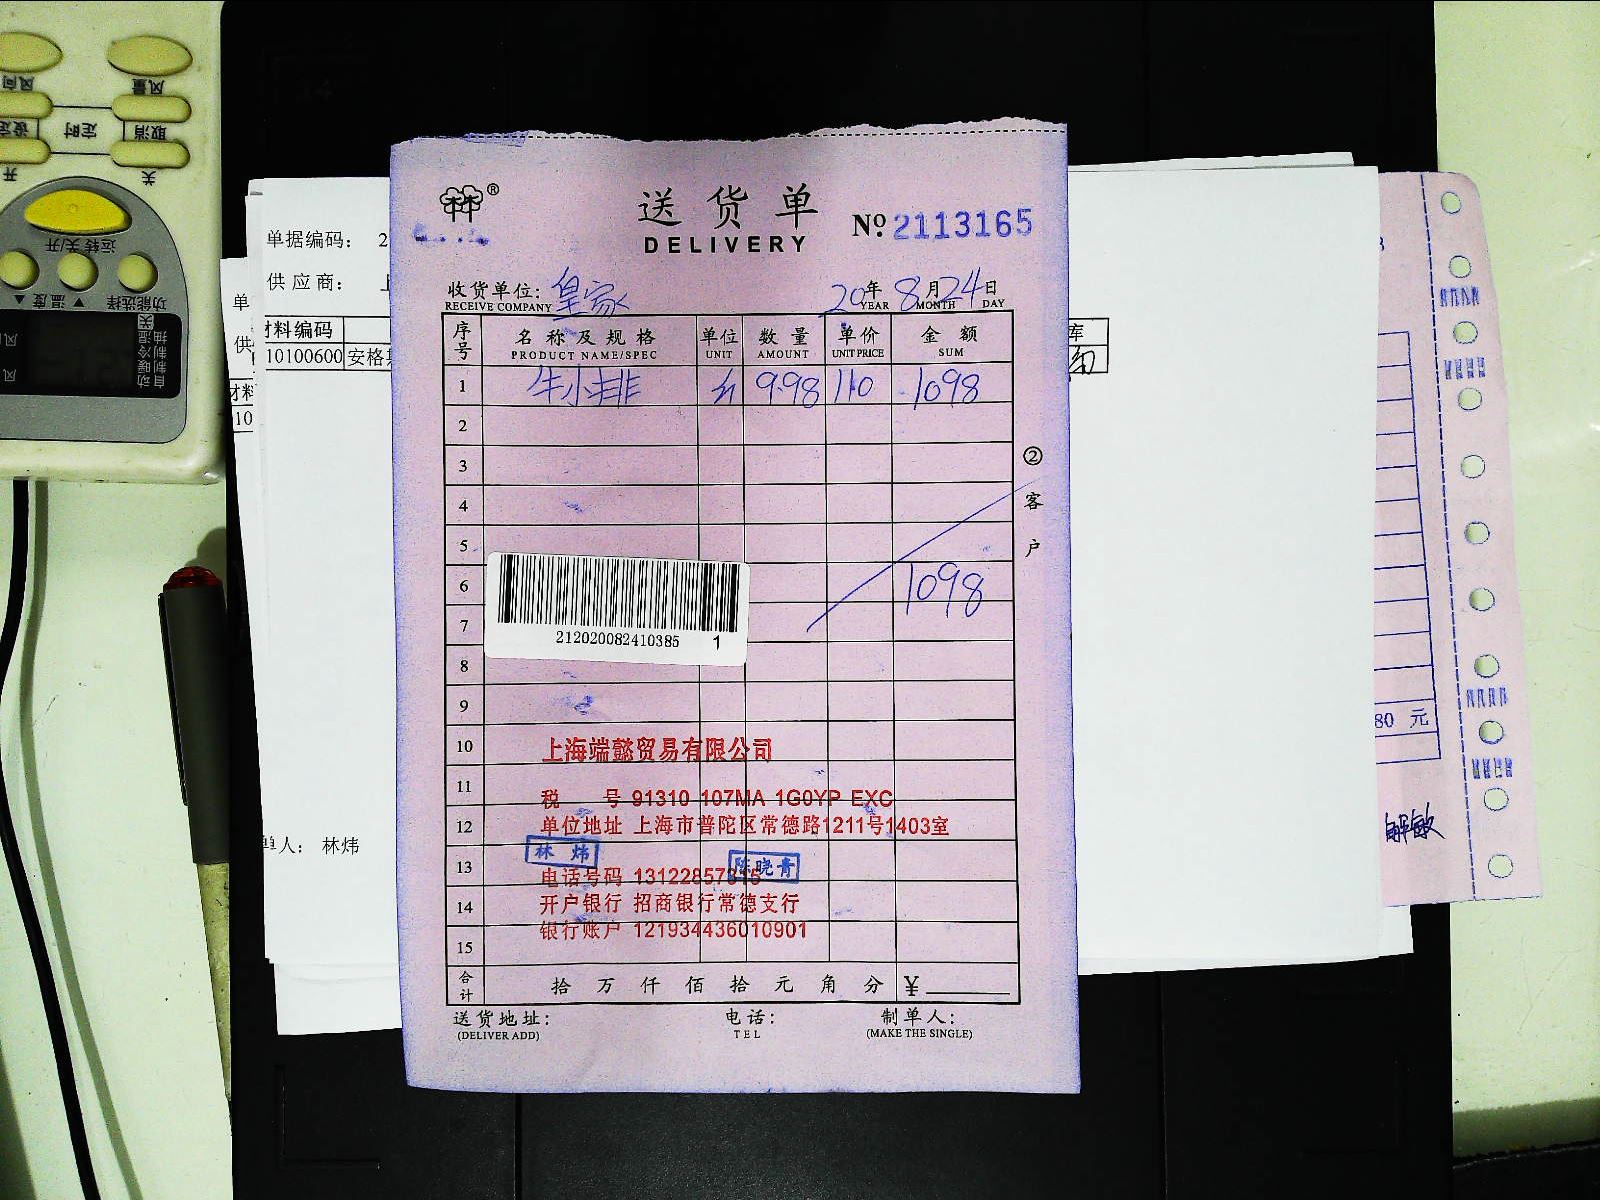 送货单
DELIVERY
No. 2113165
收货单位: 皇家 20年 8月 24日
RECEIVE COMPANY YEAR MONTH DAY
序号 名称及规格 单位 数量 单价 金额
PRODUCT NAME/SPEC UNIT AMOUNT UNIT PRICE SUM
1 牛小排 9.98 110 1098
2
3
②客户
4
5
6 1098
7
212020082410385 1
8
9
10 上海端懿贸易有限公司
11 税 号 91310 107MA 1G0YP EXC
12 单位地址 上海市普陀区常德路1211号1403室
林炜 陈晓青
13 电话号码 13122857315
14 开户银行 招商银行常德支行
15 银行账户 121934436010901
合计 拾 万 仟 佰 拾 元 角 分 ¥
送货地址: 电话: 制单人:
(DELIVER ADD) TEL (MAKE THE SINGLE)
单据编码: 2
供应商: 上
材料编码
10100600 安格
单人: 林炜
单
供
材料
10
库
80 元
风向 风量
设定 定时 取消
开 关
运转 关/开
▲ 温度 ▼ 功能选择
自动 制暖 制冷 抽湿
风